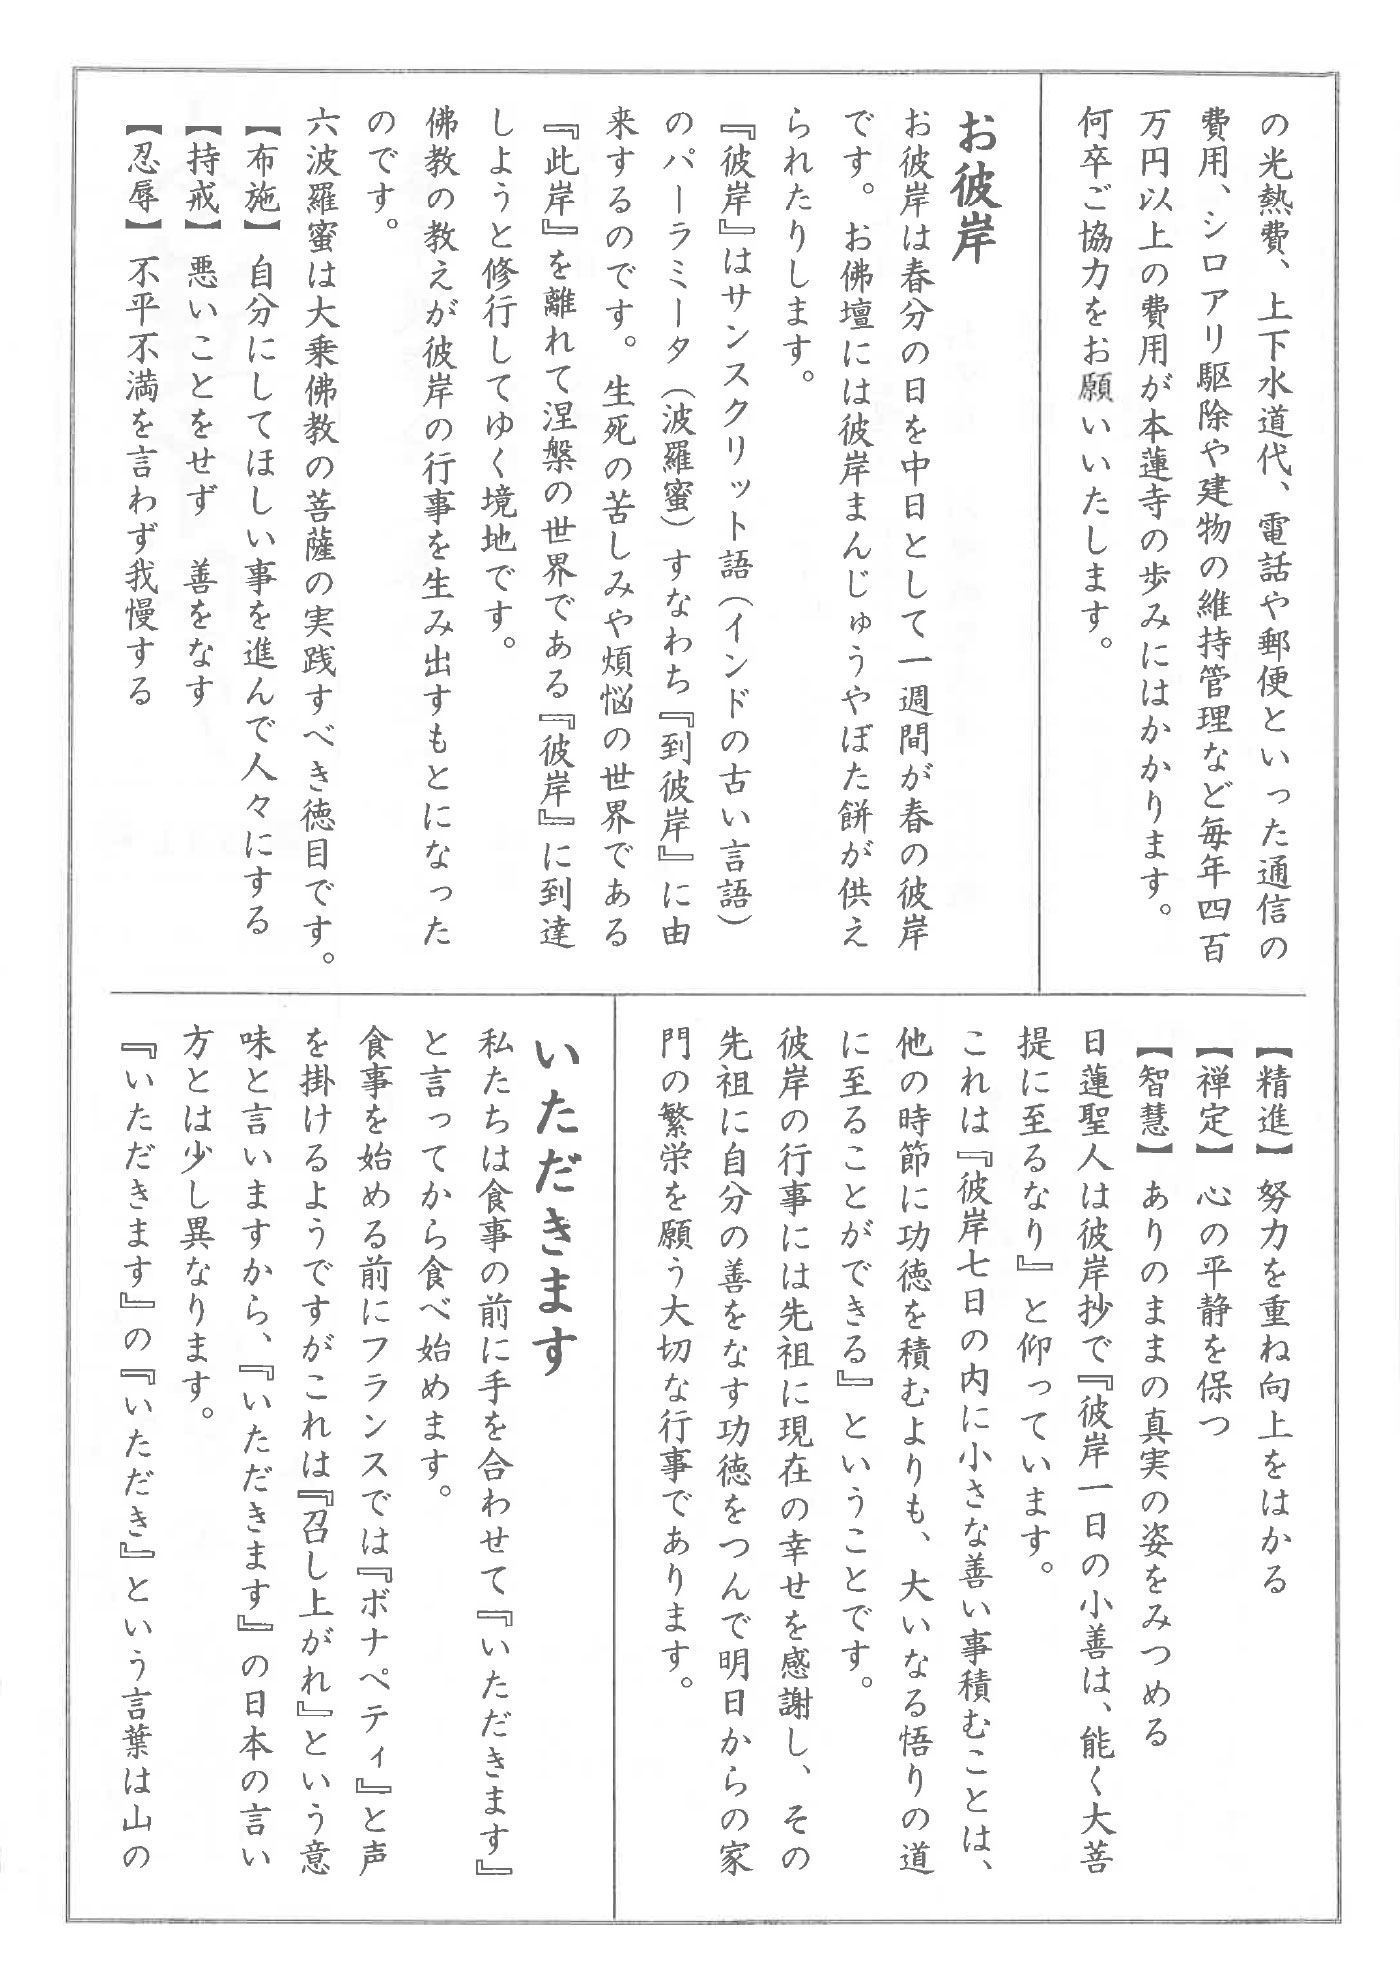 の光熱費、上下水道代、電話や郵便といった通信の
費用、シロアリ駆除や建物の維持管理など毎年四百
万円以上の費用が本蓮寺の歩みにはかかります。
何卒ご協力をお願いいたします。
お彼岸
お彼岸は春分の日を中日として一週間が春の彼岸
です。お佛壇には彼岸まんじゅうやぼた餅が供え
られたりします。
『彼岸』はサンスクリット語（インドの古い言語）
のパーラミータ（波羅蜜）すなわち『到彼岸』に由
来するのです。生死の苦しみや煩悩の世界である
『此岸』を離れて涅槃の世界である『彼岸』に到達
しようと修行してゆく境地です。
佛教の教えが彼岸の行事を生み出すもとになった
のです。
六波羅蜜は大乗佛教の菩薩の実践すべき徳目です。
【布施】自分にしてほしい事を進んで人々にする
【持戒】悪いことをせず　善をなす
【忍辱】不平不満を言わず我慢する
【精進】努力を重ね向上をはかる
【禅定】心の平静を保つ
【智慧】ありのままの真実の姿をみつめる
日蓮聖人は彼岸抄で『彼岸一日の小善は、能く大菩
提に至るなり』と仰っています。
これは『彼岸七日の内に小さな善い事積むことは、
他の時節に功徳を積むよりも、大いなる悟りの道
に至ることができる』ということです。
彼岸の行事には先祖に現在の幸せを感謝し、その
先祖に自分の善をなす功徳をつんで明日からの家
門の繁栄を願う大切な行事であります。
いただきます
私たちは食事の前に手を合わせて『いただきます』
と言ってから食べ始めます。
食事を始める前にフランスでは『ボナペティ』と声
を掛けるようですがこれは『召し上がれ』という意
味と言いますから、『いただきます』の日本の言い
方とは少し異なります。
『いただきます』の『いただき』という言葉は山の